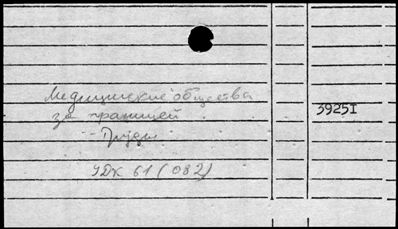 Медицинские общества
за границей
Труды
УДК 61 (082)
39251